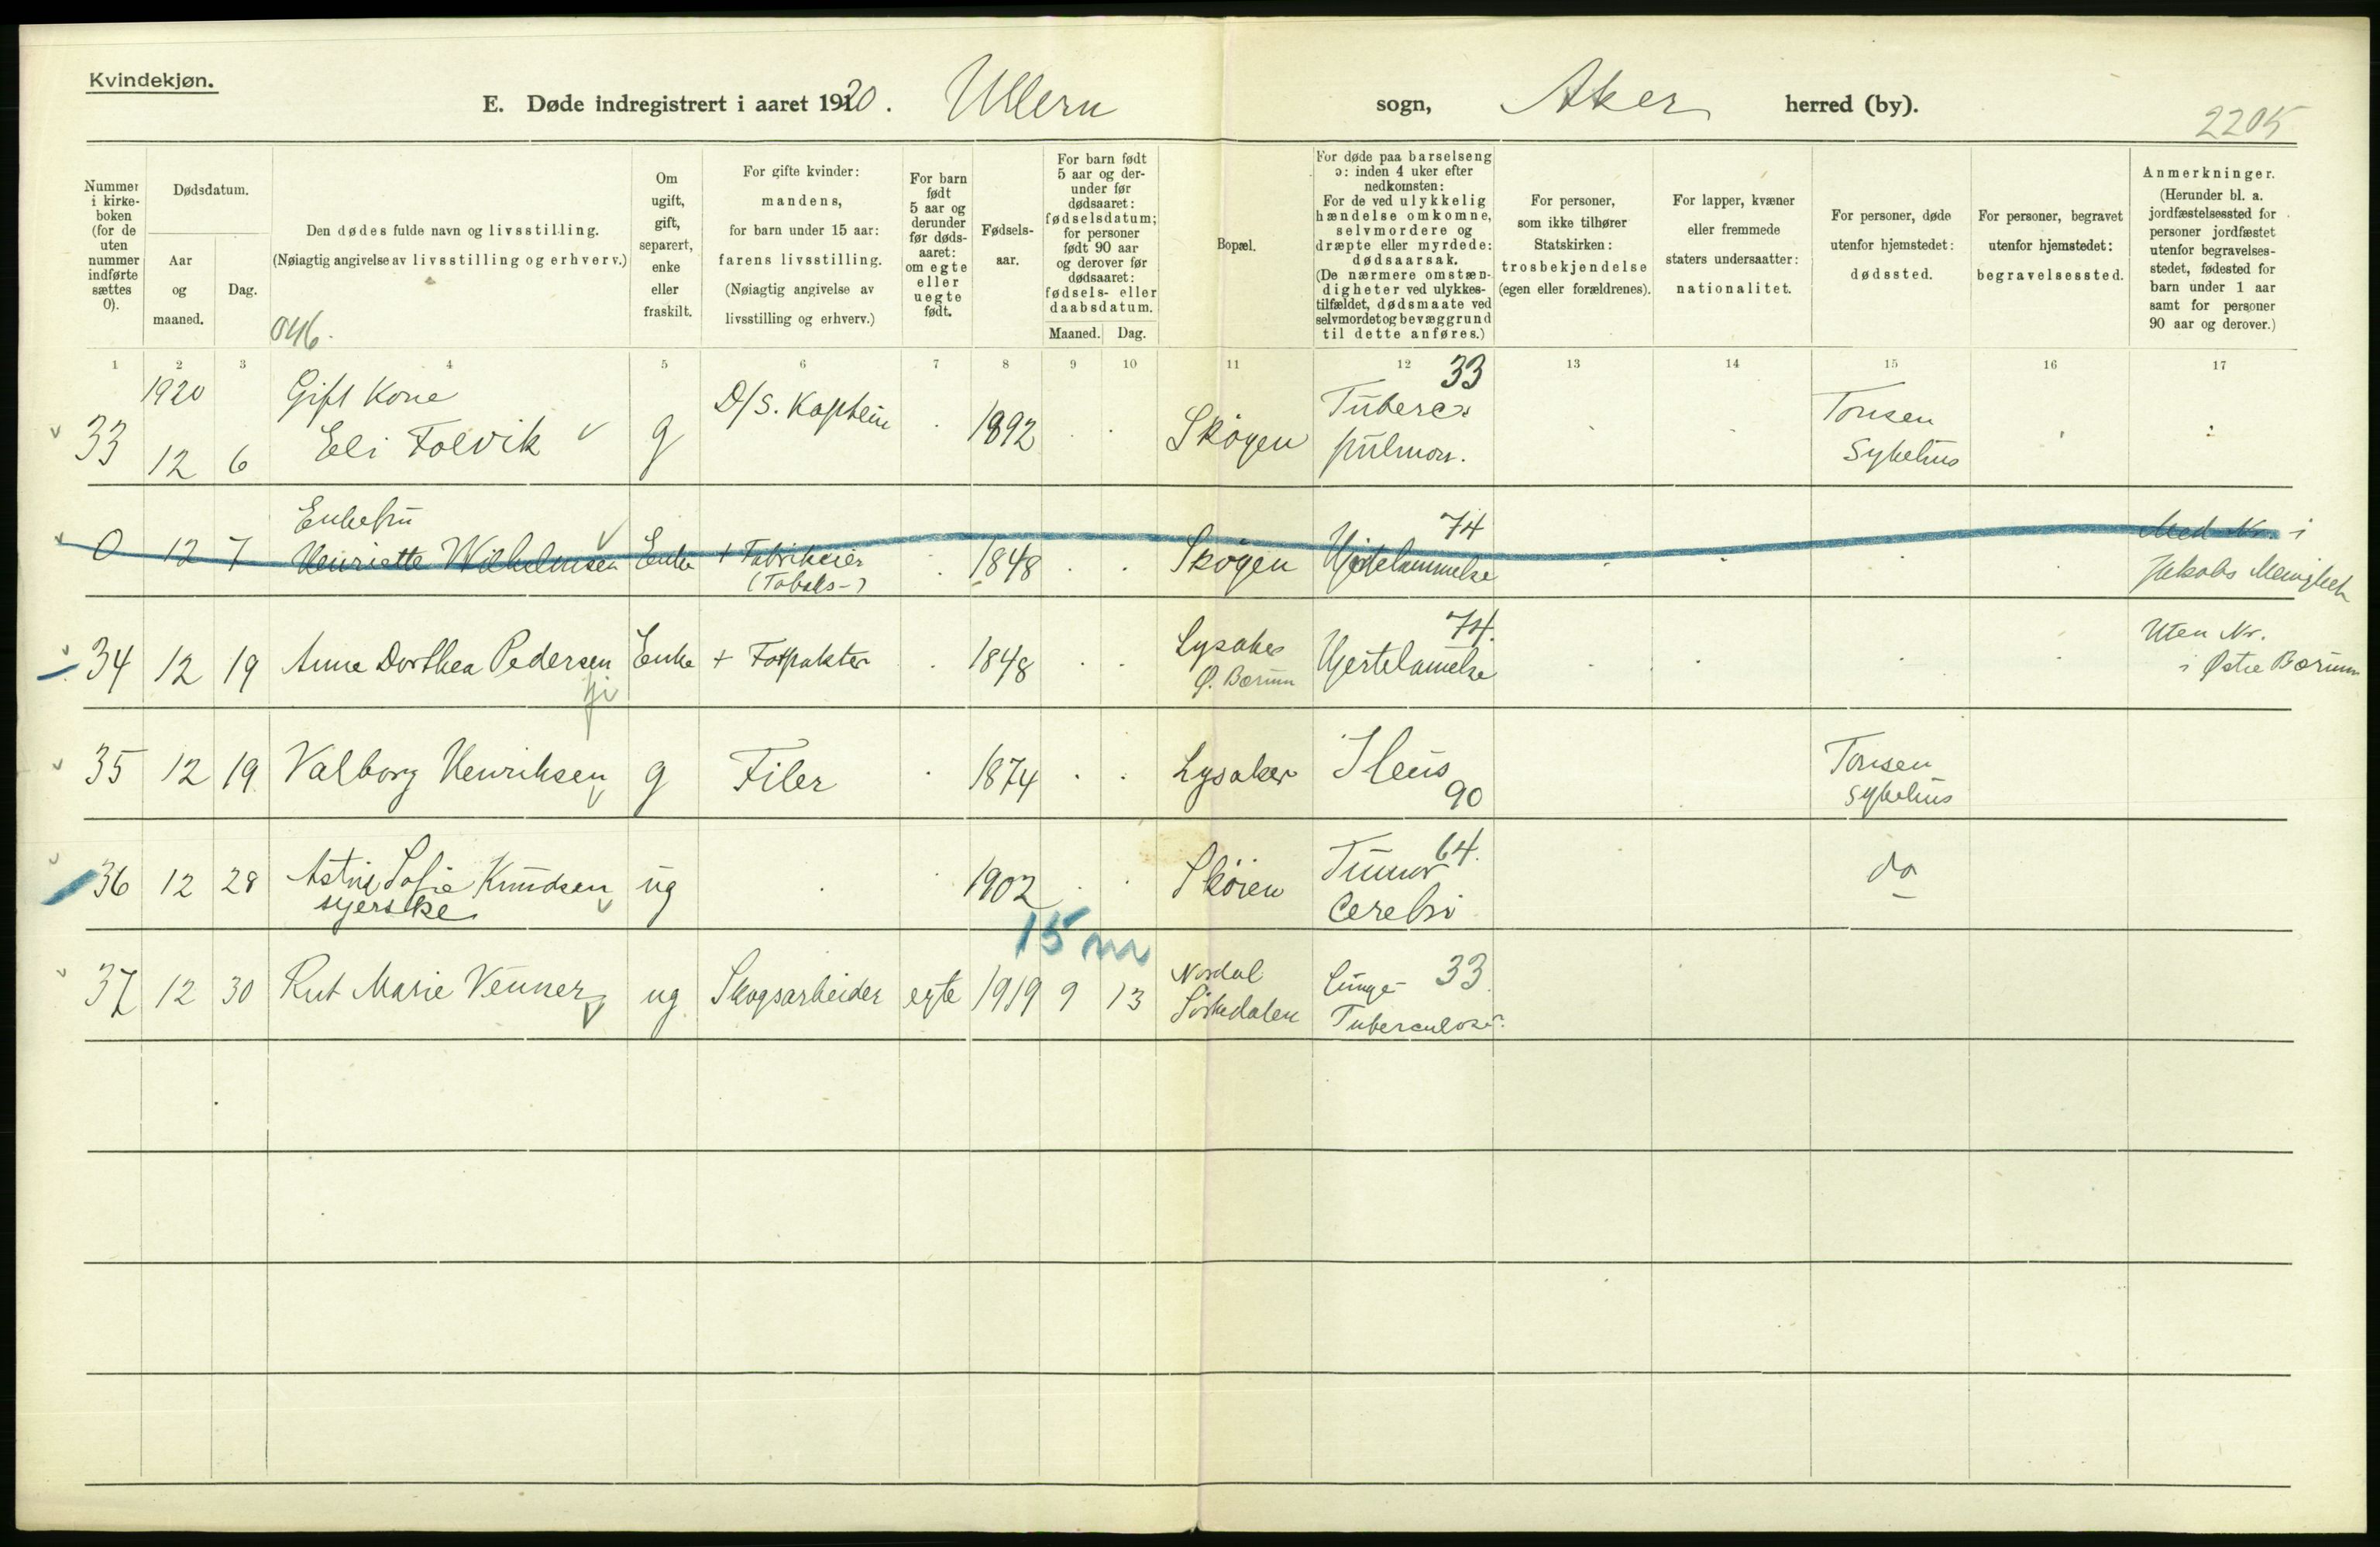 Kvindekjøn.
E. Døde indregistrert i aaret 1920. Ullern sogn, Aker herred (by).
2205
Nummer i kirkeboken (for de uten nummer indførte sættes 0).
Dødsdatum.
Aar og maaned.
Dag.
Den dødes fulde navn og livsstilling.
(Nøiagtig angivelse av livsstilling og erhverv.)
046.
Om ugift, gift, separert, enke eller fraskilt.
For gifte kvinder: mandens, for barn under 15 aar: farens livsstilling. (Nøiagtig angivelse av livsstilling og erhverv.)
For barn født 5 aar og derunder før dødsaaret: om egte eller uegte født.
Fødselsaar.
For barn født 5 aar og derunder før dødsaaret: fødselsdatum; for personer født 90 aar og derover før dødsaaret: fødsels- eller daabsdatum.
Maaned. Dag.
Bopæl.
For døde paa barselseng ɔ: inden 4 uker efter nedkomsten: For de ved ulykkelig hændelse omkomne, selvmordere og dræpte eller myrdede: dødsaarsak. (De nærmere omstændigheter ved ulykkestilfældet, dødsmaate ved selvmordet og bevæggrund til dette anføres.)
For personer, som ikke tilhører Statskirken: trosbekjendelse (egen eller forældrenes).
For lapper, kvæner eller fremmede staters undersaatter: nationalitet.
For personer, døde utenfor hjemstedet: dødssted.
For personer, begravet utenfor hjemstedet: begravelsessted.
Anmerkninger.
(Herunder bl. a. jordfæstelsessted for personer jordfæstet utenfor begravelsesstedet, fødested for barn under 1 aar samt for personer 90 aar og derover.)
1 2 3 4 5 6 7 8 9 10 11 12 13 14 15 16 17
1920 Gift Kone D/S. Kaptein 33 Tuberc: Tonsen
33 12 6 Eli Folvik g 1892 Skøyen pulmon. Sykehus
Enkefru 74
0 12 7 Henriette Wilhelmsen Enke + Fabrikeier 1848 Skøyen Hjertelammelse Med Nr. i
(Tobaks-) Jakobs Menighet
74. Uten Nr.
34 12 19 Anne Dorthea Pedersen Enke + Forpakter 1848 Lysaker Ø. Bærum Hjertelamelse i Østre Bærum
35 12 19 Valborg Henriksen g Filer 1874 Lysaker Ileus 90 Tonsen sykehus
36 12 28 Astrid Sofie Knudsen ug 1902 Skøien Tumor 64. do
syerske Cerebri
15 m
37 12 30 Rut Marie Venner ug Skogsarbeider egte 1919 9 13 Nordal Sørkedalen Lunge- 33
Tuberculose.